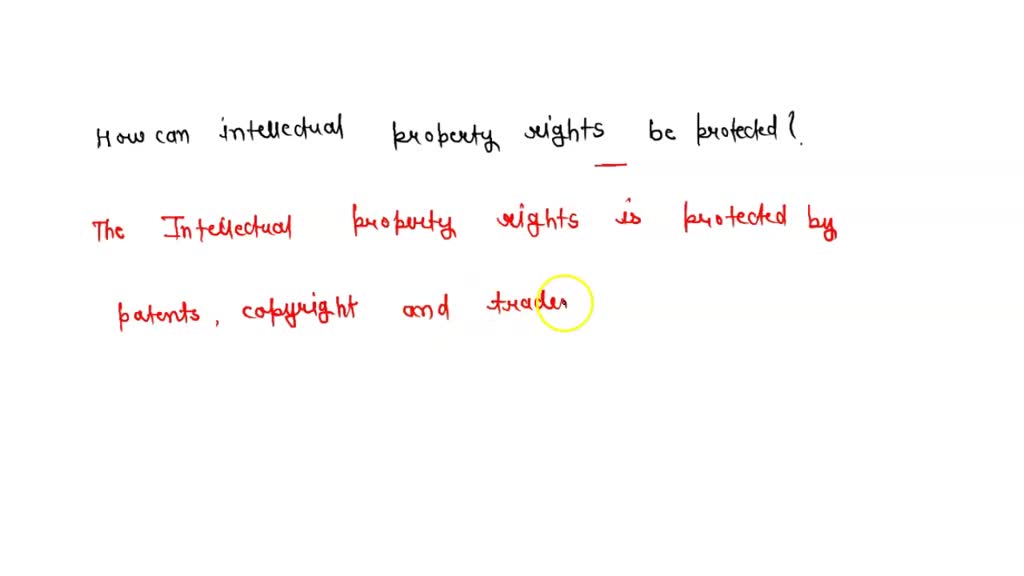 How can intellectual property rights be protected?
The Intellectual property rights is protected by
patents, copyright and trade